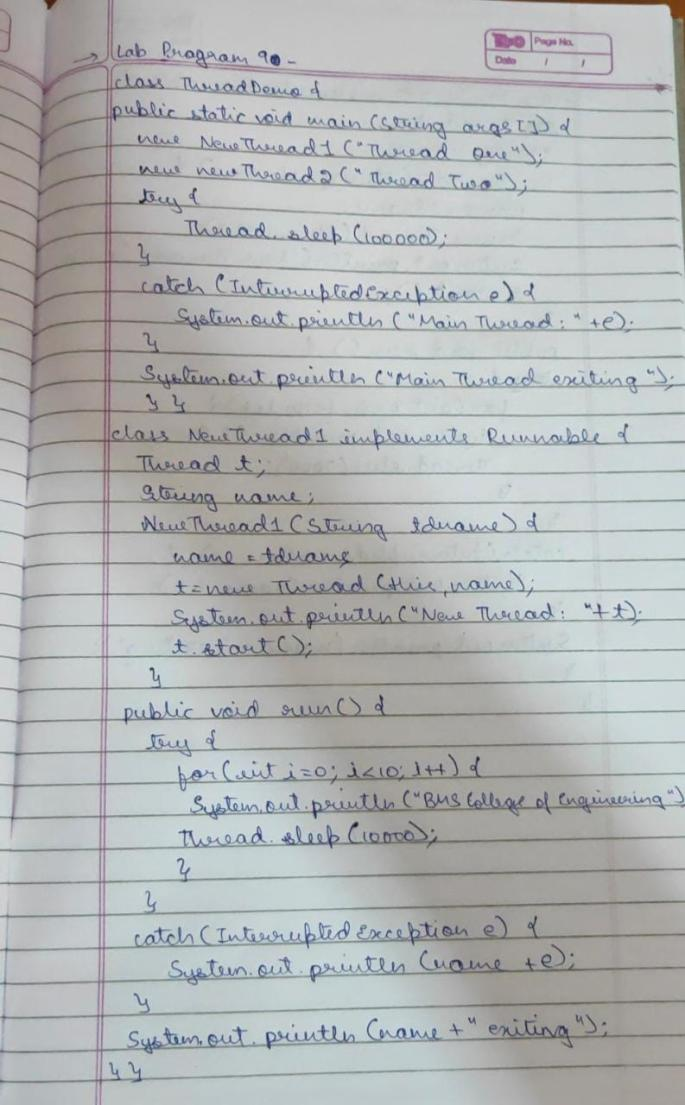 Page No.
Date / /
→ Lab Program 9 -
class ThreadDemo {
public static void main (String args []) {
new NewThread1 ("Thread One");
new newThread2 ("Thread Two");
try {
Thread.sleep (100000);
}
catch (InterruptedException e) {
System.out.println ("Main Thread: " +e);
}
System.out.println ("Main Thread exiting ");
} }
class NewThread1 implements Runnable {
Thread t;
String name;
NewThread1 (String tdname) {
name = tdname
t = new Thread (this, name);
System.out.println ("New Thread: "+ t);
t.start ();
}
public void run() {
try {
for (int i=0; i<10; i++) {
System.out.println ("BMS College of Engineering")
Thread.sleep (10000);
}
}
catch (Interrupted Exception e) {
System.out.println (name +e);
}
System.out.println (name + " exiting ");
} }